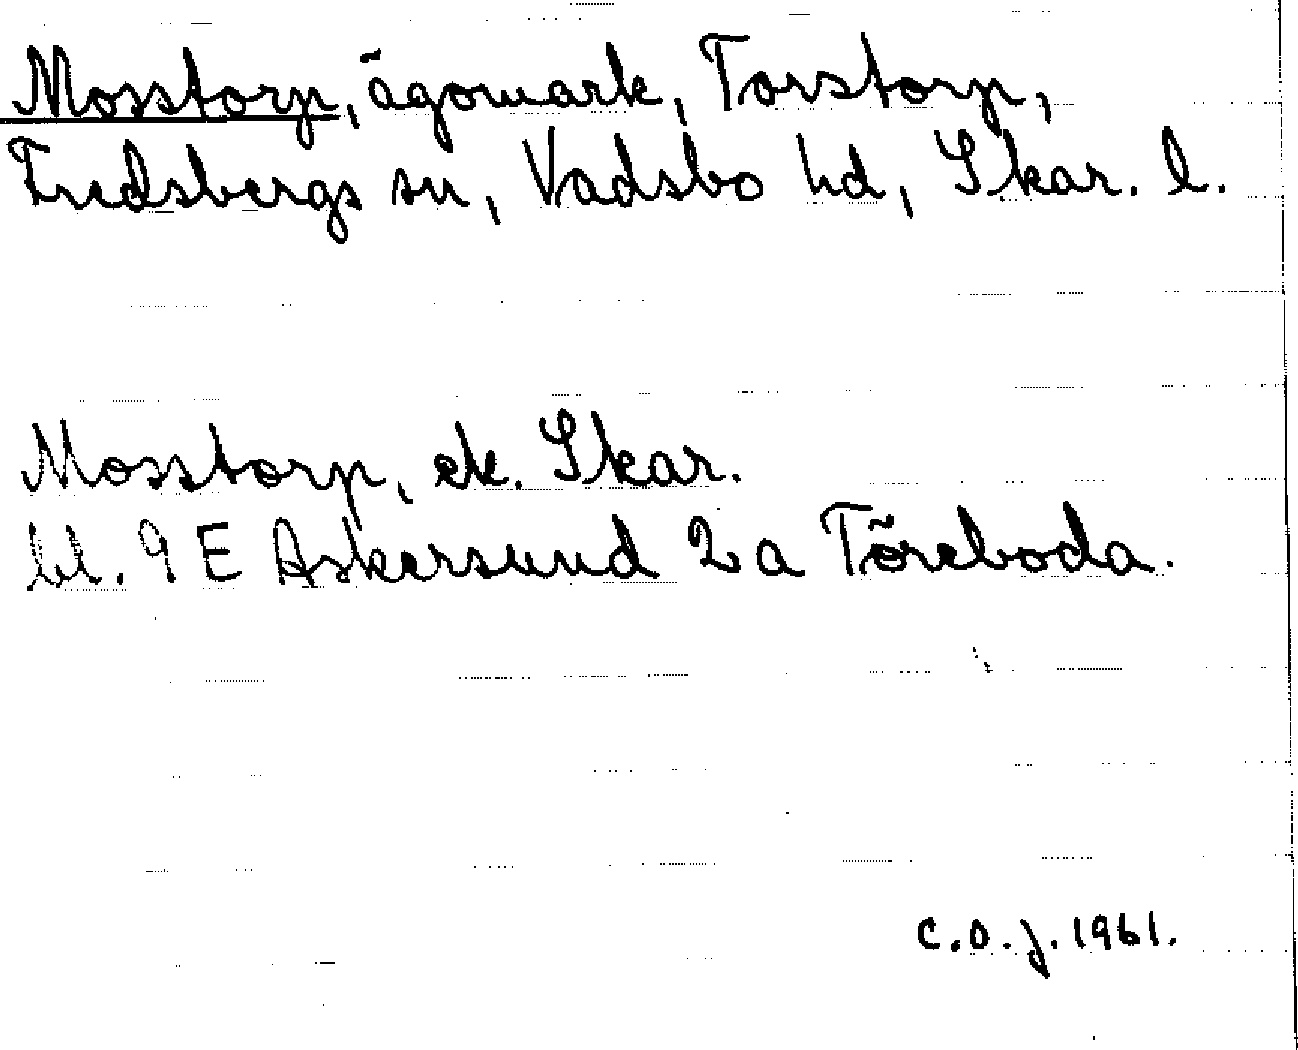 Mosstorp, ägomark, Torstorp,
Fredsbergs sn, Vadsbo hd, Skar. l.
Mosstorp, ek. Skar.
bl. 9 E Askersund 2 a Töreboda.
C.O.J. 1961.